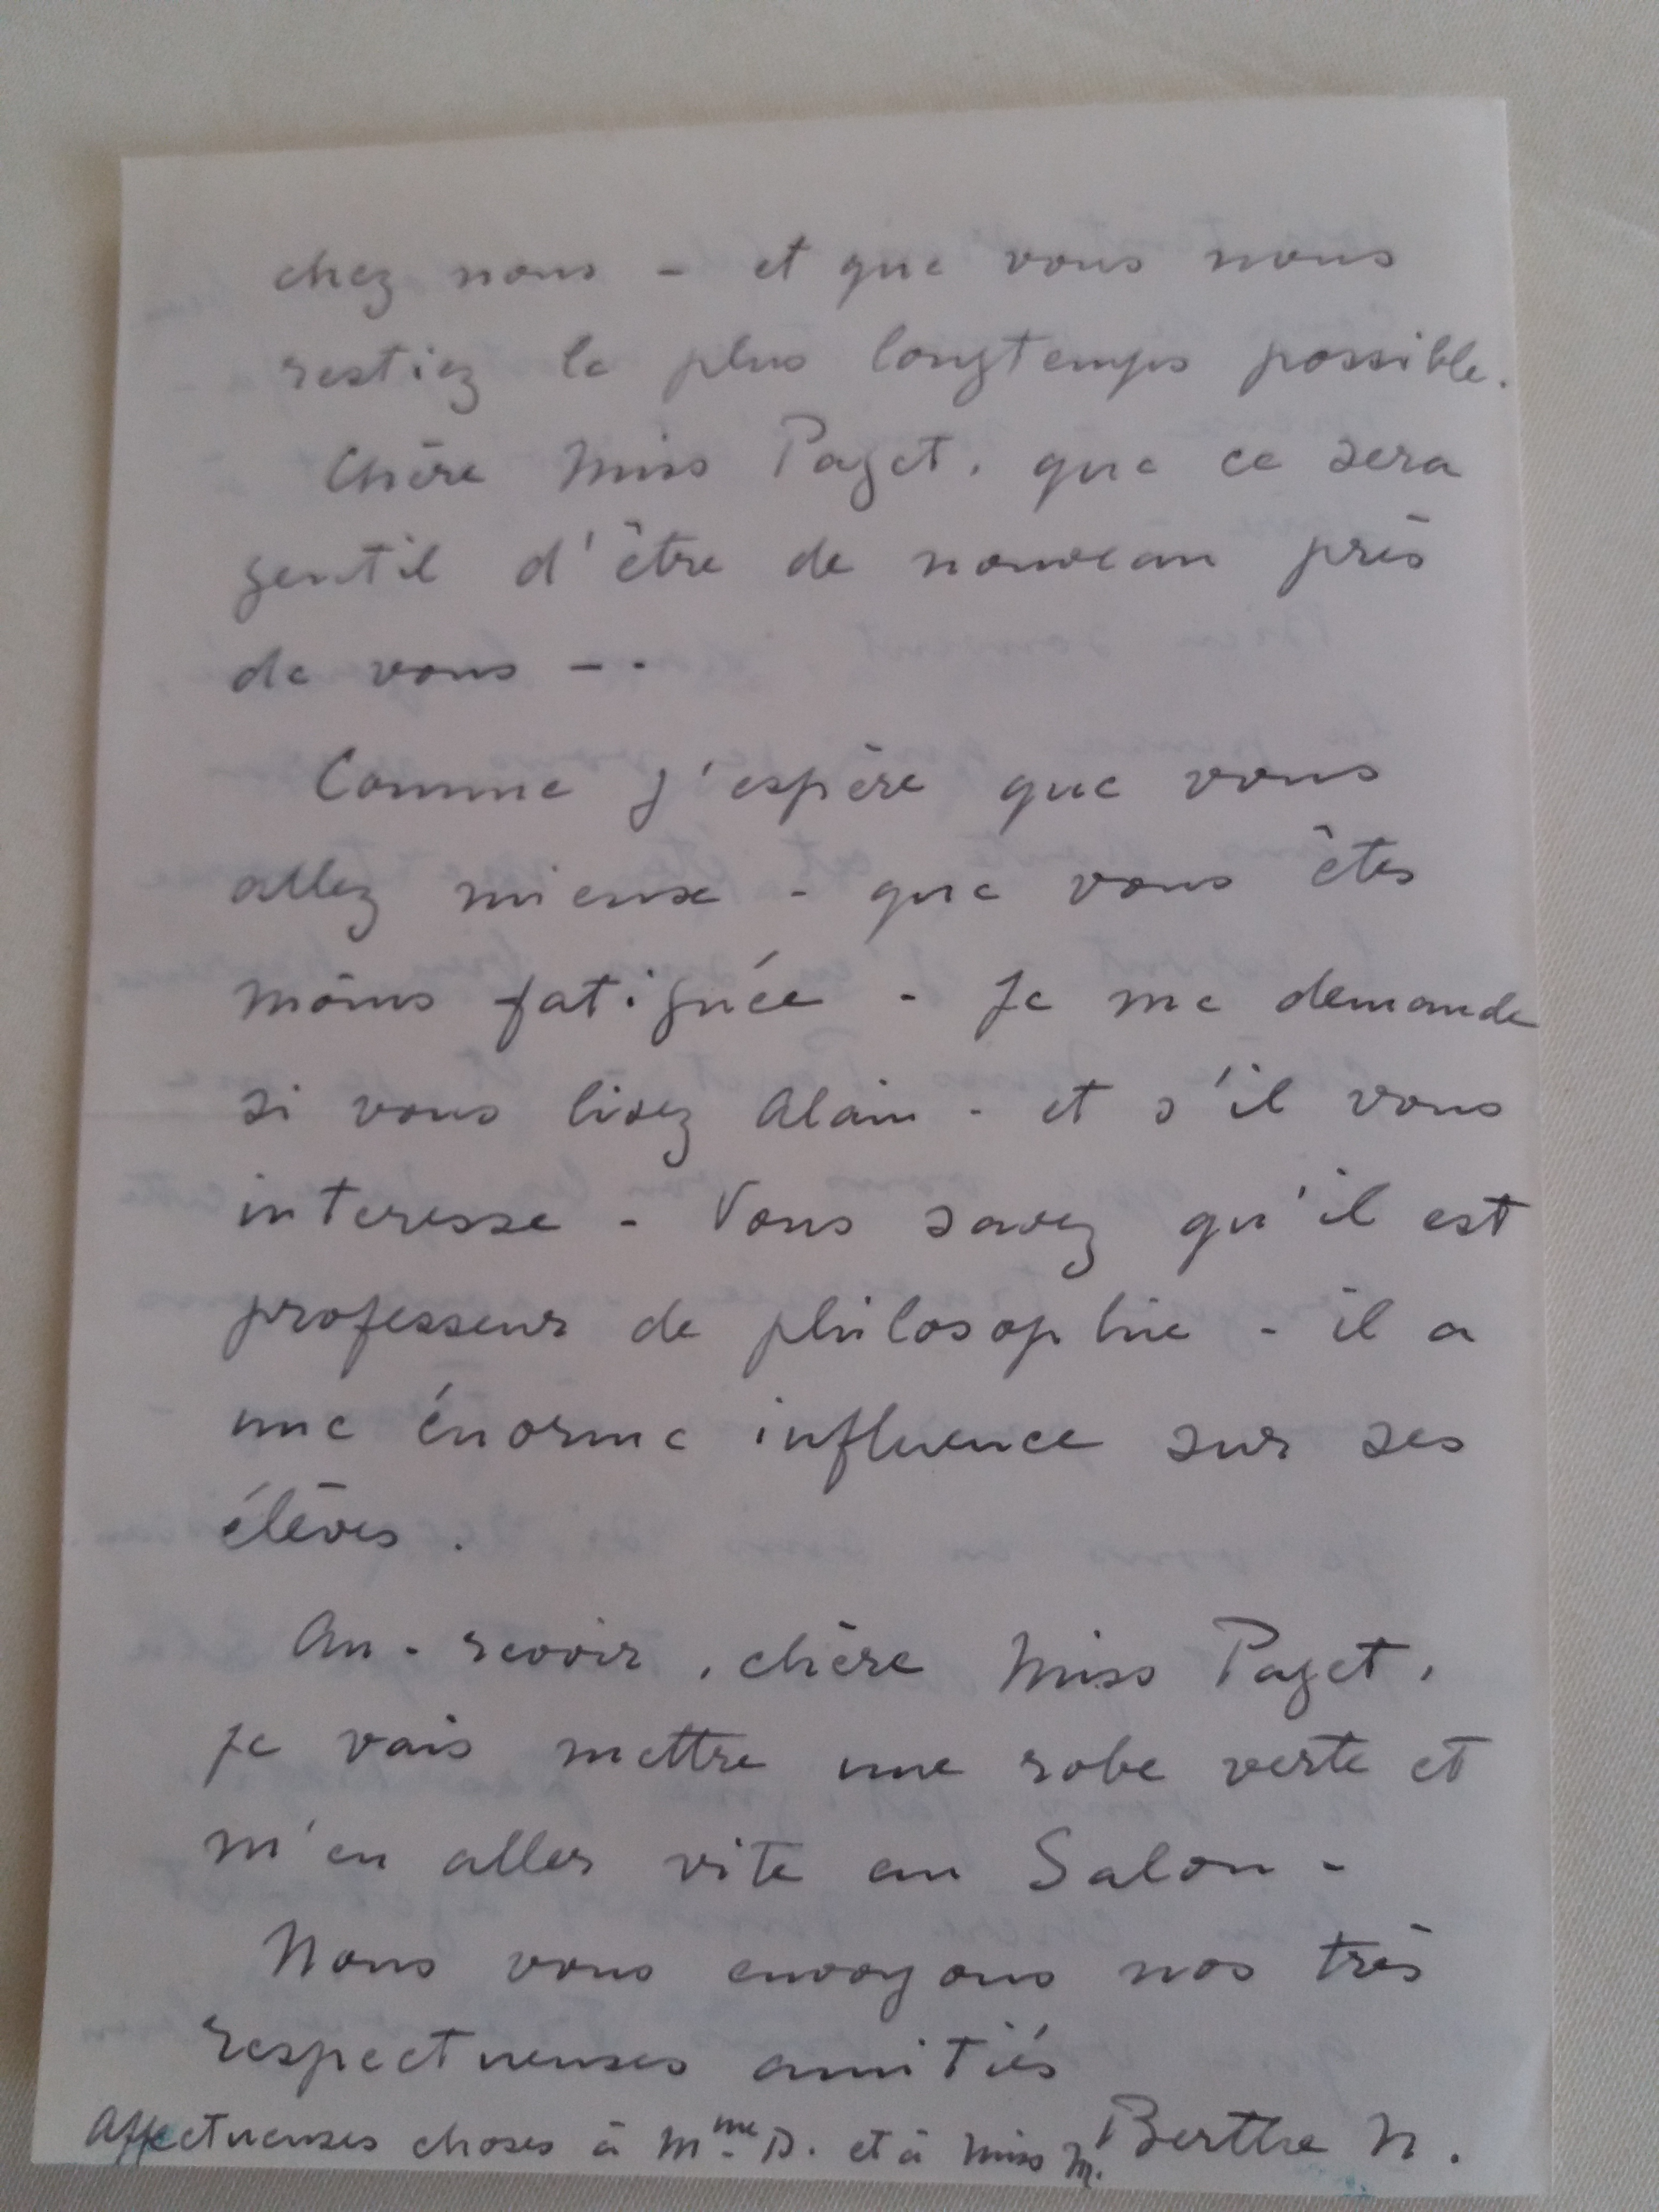 chez nous - et que vous nous
restiez le plus longtemps possible.
Chère Miss Paget, que ce sera
gentil d'être de nouveau près
de vous - .
Comme j'espère que vous
allez mieux - que vous êtes
moins fatiguée - Je me demande
si vous lisez Alain - et s'il vous
interesse - Vous savez qu'il est
professeur de philosophie - il a
une énorme influence sur ses
élèves.
Au-revoir, chère Miss Paget,
je vais mettre une robe verte et
m'en aller vite au Salon -
Nous vous envoyons nos très
respectueuses amitiés
Berthe N.
Affectueuses choses à Mme D. et à Miss M.